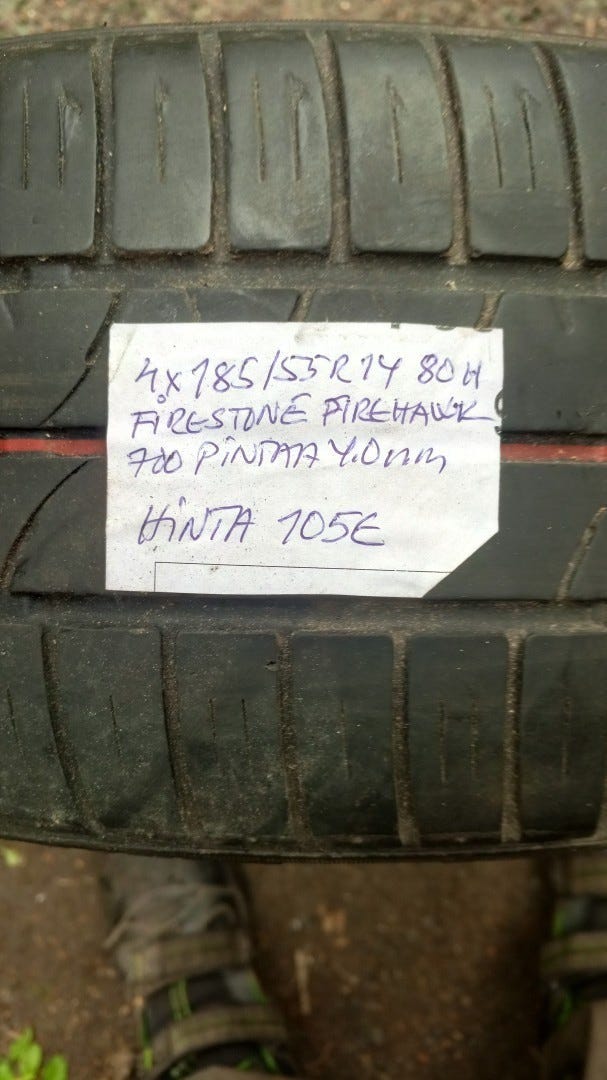 4x 185/55R14 80H
FIRESTONE FIREHAWK
700 PINTAA 4.0mm
HINTA 105€